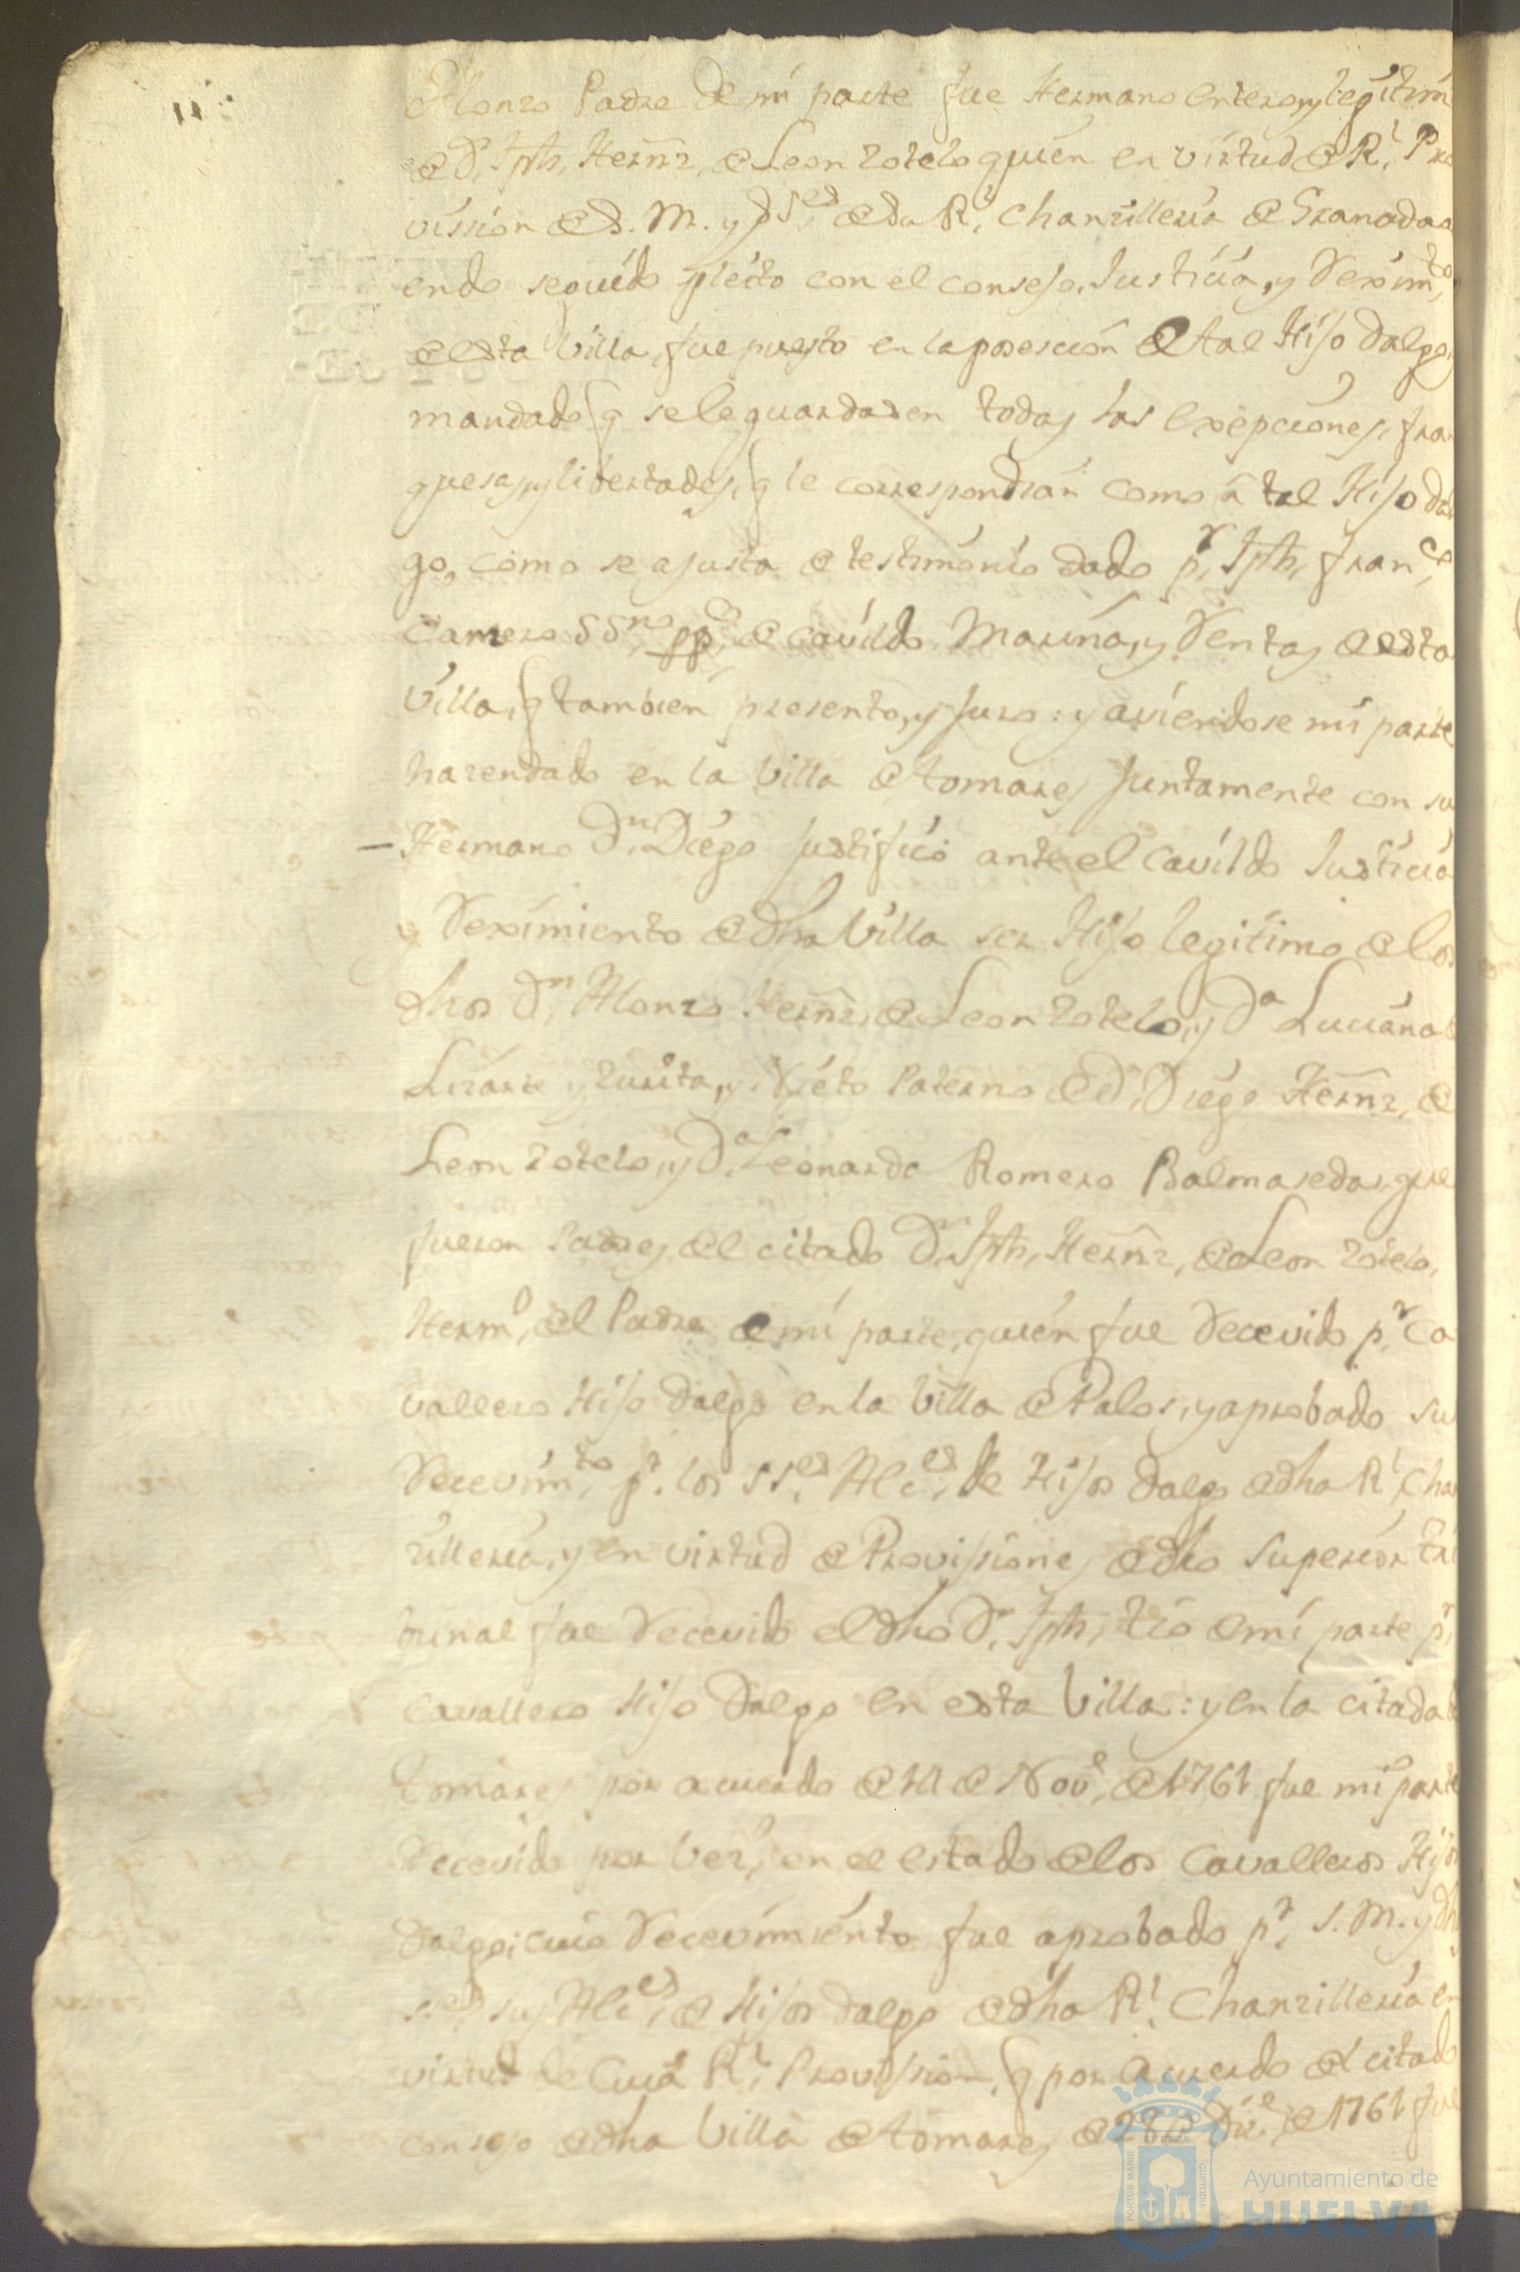 Alonso Padre de mi parte fue Hermano entero, y legitim
de Dn. Jph. Hernz. de Leon Sotelo quien en virtud de Rl. Pro
vission de S. M. y SSes. de su Rl. Chanzilleria de Granada
endo seguido pleito con el consejo, Justicia, y Reximto.
de esta Villa, fue puesto en la posescion de tal Hijo dalgo,
mandado q se le guardasen todas las exepciones, fran
quesas, y libertades, q le correspondian como â tal Hijo dal
go, como se ajusta de testimonio dado pr. Jph. Franco.
Camero SSno. ppco. de cavildo, Marina, y Rentas de esta
Villa, q tambien presento, y juro: y aviendose mi parte
hazendado en la Villa de tomares juntamente con su
Hermano Dn. Diego justifico ante el Cavildo Justicia
y Reximiento de dha Villa ser Hijo legitimo de los
dhos Dn. Alonzo Hernz. de Leon Sotelo, y Da Luciana
Lizarte y Zurita, y Nieto Paterno de Dn. Diego Hernz. de
Leon Sotelo, y Da. Leonarda Romero Balmaseda, que
fueron Padres del citado Dn. Jph. Hernz. de Leon Sotelo,
Hermo. del Padre de mi parte, quien fue Recevido pr. Ca
vallero Hijo dalgo en la Villa de Palos, y aprobado su
Recevimto. pr. los SSes. Alces. de Hijos dalgo de dha Rl. Chan
zilleria, y en virtud de Provissiones de dho Superior Tri
bunal fue Recevido el dho Dn. Jph. tio de mi parte pr.
Cavallero Hijo dalgo en esta Villa: y en la citada
tomares por acuerdo de de Nove. de 1761 fue mi parte
Recevido por Vezo. en el estado de los Cavalleros Hijos
dalgo; cuio Recevimiento fue aprobado pr. S. M. y dh
SSes. sus Alces. de Hijos dalgo de dha Rl. Chanzilleria en
virtud de Cuia Rl. Provission, q por acuerdo del citado
consejo de dha Villa de tomares de 28 de Dize. de 1761 fue
Ayuntamiento de
HUELVA
PORTUS MARIS
CUSTODIA